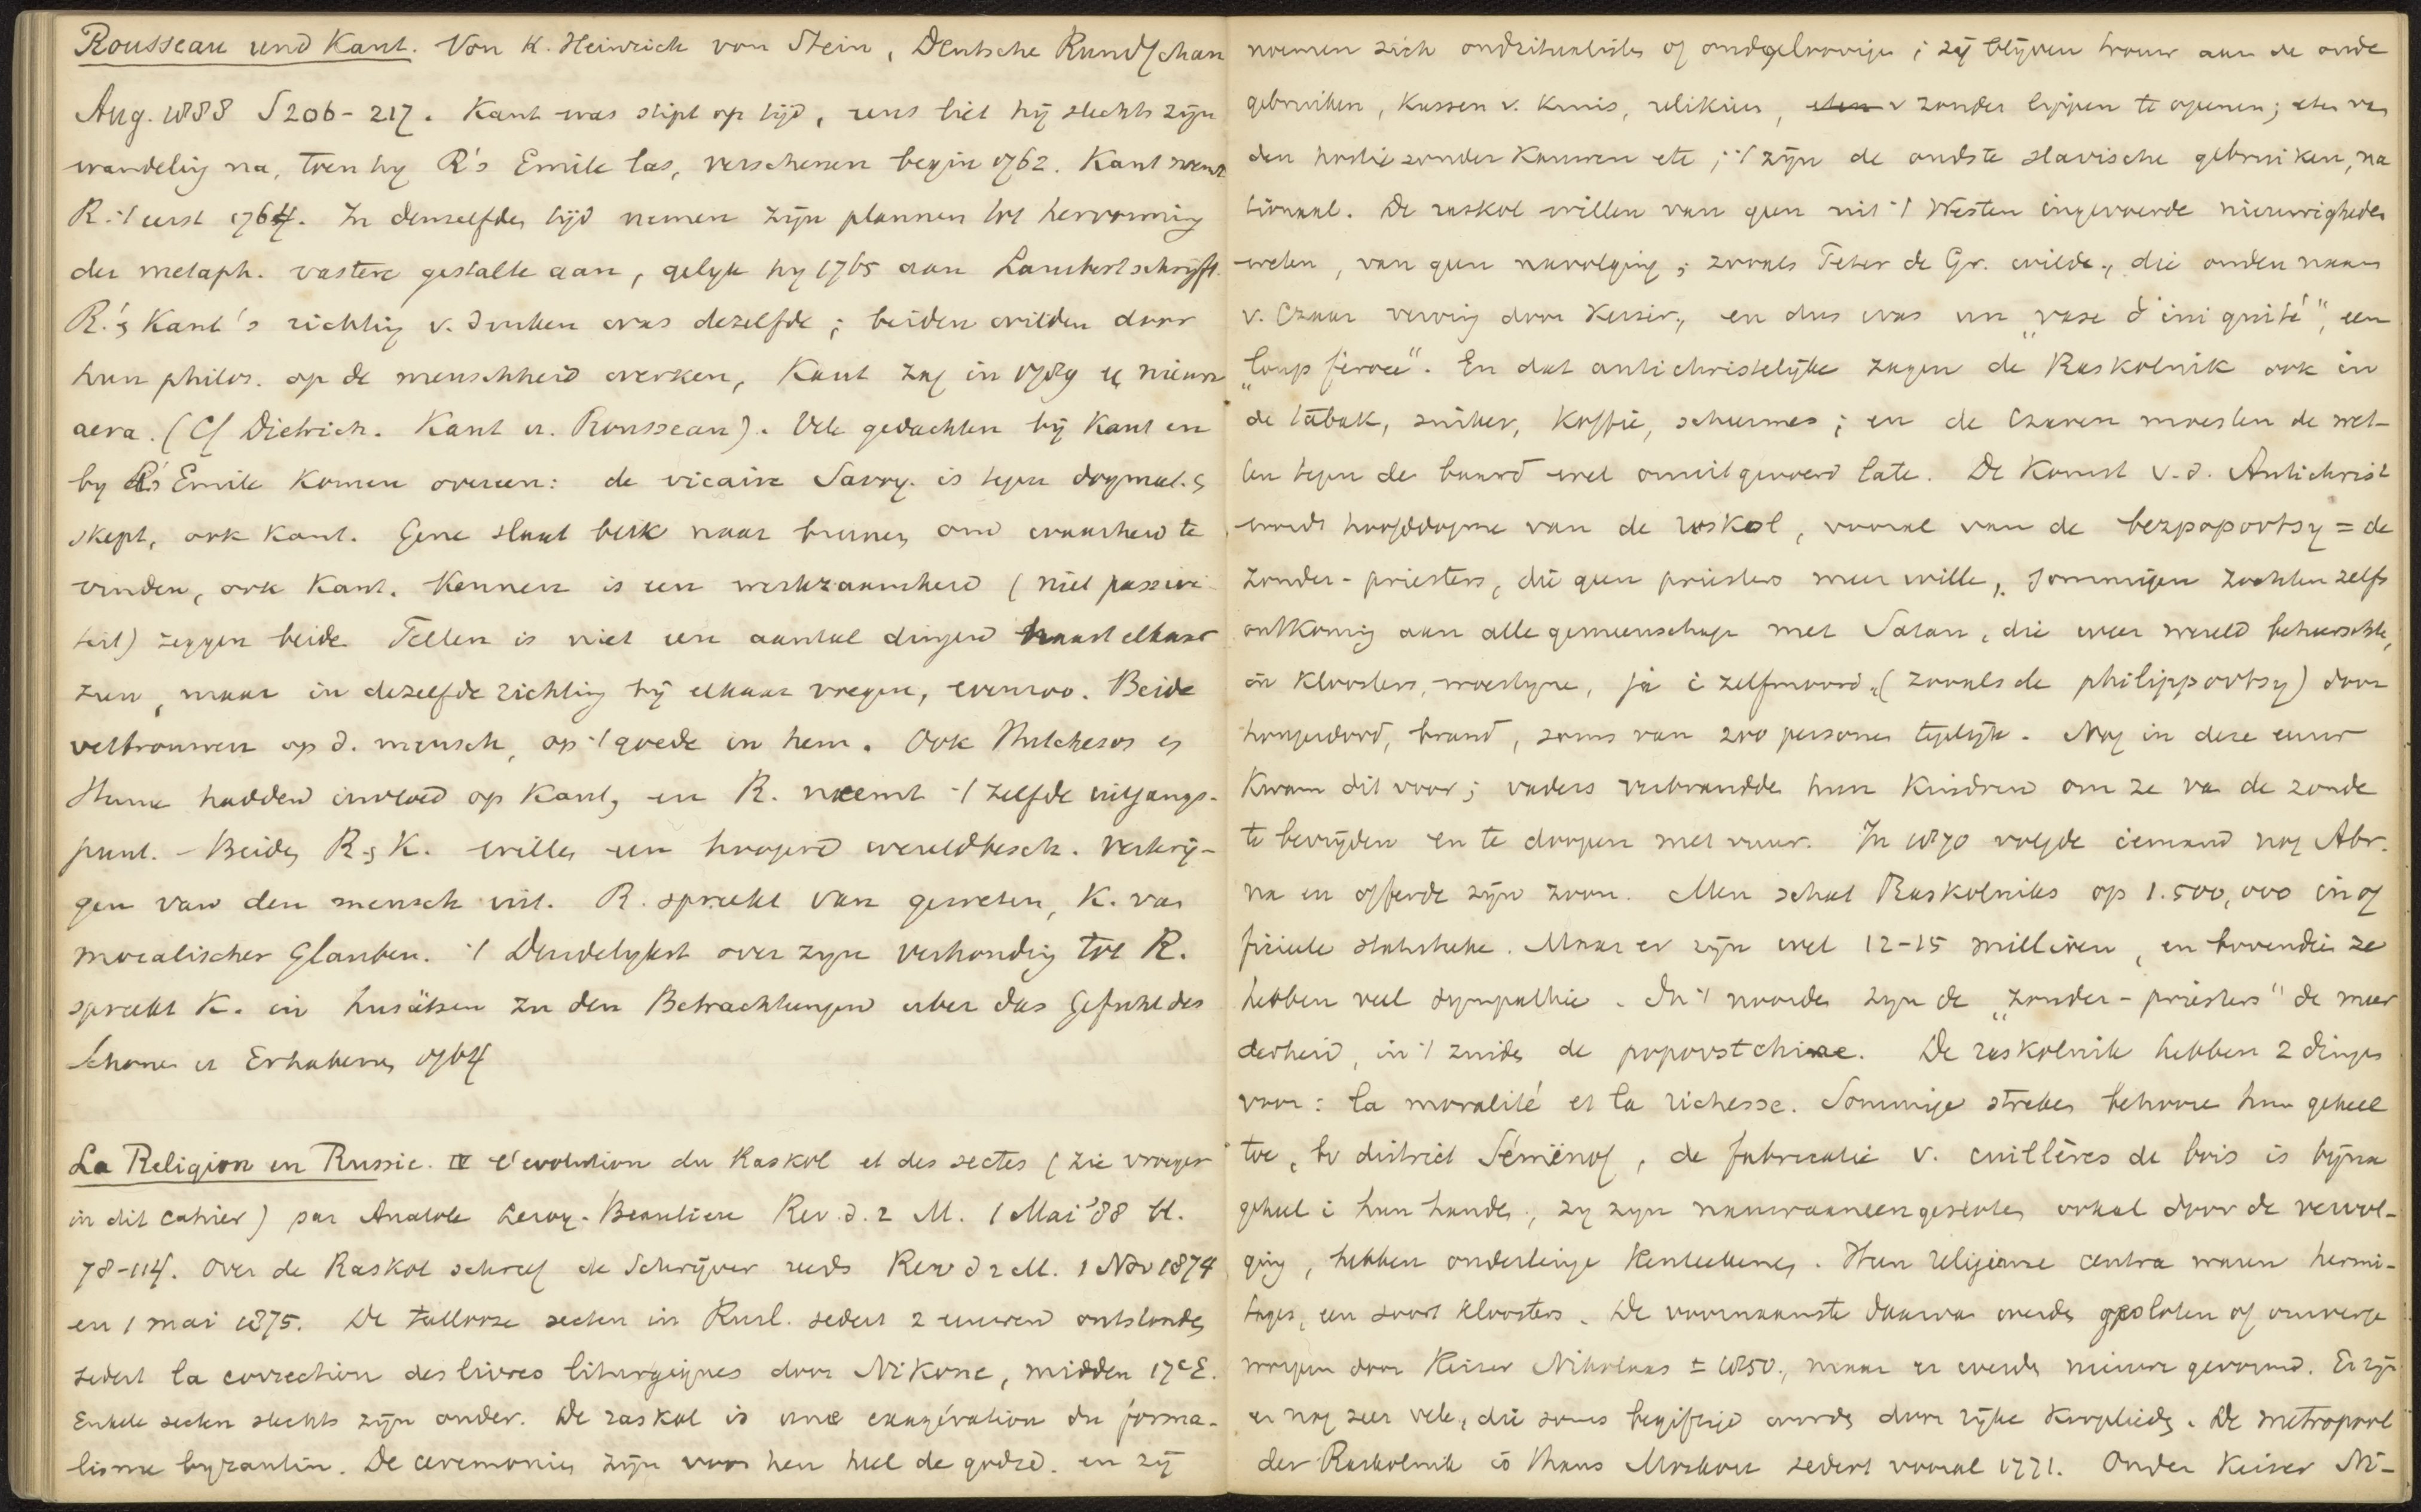 Rousseau und Kant. Von K. Heinrich von Stein, Deutsche Rundschau
Aug. 1888 S 206-217. Kant was stipt op tijd, eens liet hij slechts zijn
wandeling na, toen hij R's Emile las, verschenen begin 1762. Kant noemt
R. 't eerst 1764. In denzelfden tijd nemen zijn plannen tot hervorming
der metaph. vastere gestalte aan, gelijk hij 1765 aan Lambert schrijft.
R.'s Kant's richting v. denken was dezelfde; beiden wilden door
hun philos. op de menschheid werken, Kant zag in 1789 een nieuw
aera. (Cf Dietrich. Kant u. Rousseau). Vele gedachten bij Kant en
by R's Emile komen overeen: de vicaire Savoy. is tegen dogmat. en
skept, ook Kant. Gene slaat blik naar binnen om waarheid te
vinden, ook Kant. Kennen is een werkzaamheid (niet passivi
teit) zeggen beide. Tellen is niet een aantal dingen naast elkaar
zien, maar in dezelfde richting bij elkaar voegen, evenzoo. Beide
vertrouwen op d. mensch, op 't goede in hem. Ook Hutcheson en
Hume hadden invloed op Kant, en R. neemt 't zelfde uitgangs-
punt. - Beiden R en K. willen een hoogere wereldbesch. verkrij-
gen van den mensch uit. R. spreekt van geweten, K. van
moralischer Glauben. 't Duidelijkst over zijn verhouding tot R.
spreekt K. in Zusätzen zu den Betrachtungen uber das Gefuhl des
Schonen u Erhabenen 1764
La Religion en Russie. IV l'evolution du Raskol et des sectes (zie vroeger
in dit cahier) par Anatole Leroy-Beaulieu Rev. d. 2 M. 1 Mai '88 bl.
78-114. Over de Raskol schreef de Schrijver reeds Rev d 2 M. 1 Nov 1874
en 1 mai 1875. De tallooze secten in Rusl. sedert 2 eeuwen ontstonden
sedert la correction des livres liturgiques door Nikone, midden 17e E.
Enkele secten slechts zijn ouder. De raskol is une exagération du forma-
lisme byzantin. De ceremonien zijn voor hen heel de godsd. en zij
noemen zich oudritualisten of oudgeloovigen; zij blijven trouw aan de oude
gebruiken, kussen v. kruis, relikien, zonder lippen te openen; eten van
den hostie zonder kauwen etc; 't zijn de oudste slavische gebruiken, na
tionaal. De raskol willen van geen uit 't Westen ingevoerde nieuwigheden
weten, van geen navolging; zooals Peter de Gr. wilde, die ouden naam
v. Czaar verving door Keizer, en dus was un „vase d'iniquité", een
„loup féroce". En dat antichristelijke zagen de Raskolnik ook in
de tabak, suiker, koffie, schurmes; en de Czaren moesten de wet-
ten tegen de baard wel onuitgevoerd late. De komst v. d. Antichrist
werd hoofddogma van de raskol, vooral van de bezpopovtsy = de
zonder-priesters, die geen priesters meer wille. Sommigen zochten zelfs
ontkoming aan alle gemeenschap met Satan, die weer wereld beheerschte,
in kloosters, woestijne, ja i zelfmoord, (zooals de philippovtsy) door
hongerdood, brand, soms van 200 personen tegelijk. Nog in deze eeuw
kwam dit voor; vaders verbrandde hun kindren om ze va de zonde
te bevrijden en te doopen met vuur. In 1870 volgde iemand nog Abr.
na en offerde zijn zoon. Men schat Raskolniks op 1.500,000 in of
ficieele statistieke. Maar er zijn wel 12-15 millioen, en bovendien ze
hebben veel sympathie. In 't noorden zijn de „zonder-priesters" de meer
derheid, in 't zuiden de popovstchine. De raskolnik hebben 2 dingen
voor: la moralité et la richesse. Sommige streken behoore hun geheel
toe, bv district Séménof, de fabricatie v. cuillères de bois is bijna
geheel i hun handen; zij zijn nauwaaneengesloten vooral door de vervol-
ging, hebben onderlinge kenteekenen. Hun religieuse centra waren hermi-
tages, een soort kloosters. De voornaamste daarvan werden gesloten of omverge
worpen door Keizer Nikolaas ± 1850, maar er werden nieuwe gevormd. Er zijn
er nog zeer vele, die soms begiftigd worden door rijke kooplieden. De metropool
der Raskolnik is thans Moskou sedert vooral 1771. Onder Keizer Ni-